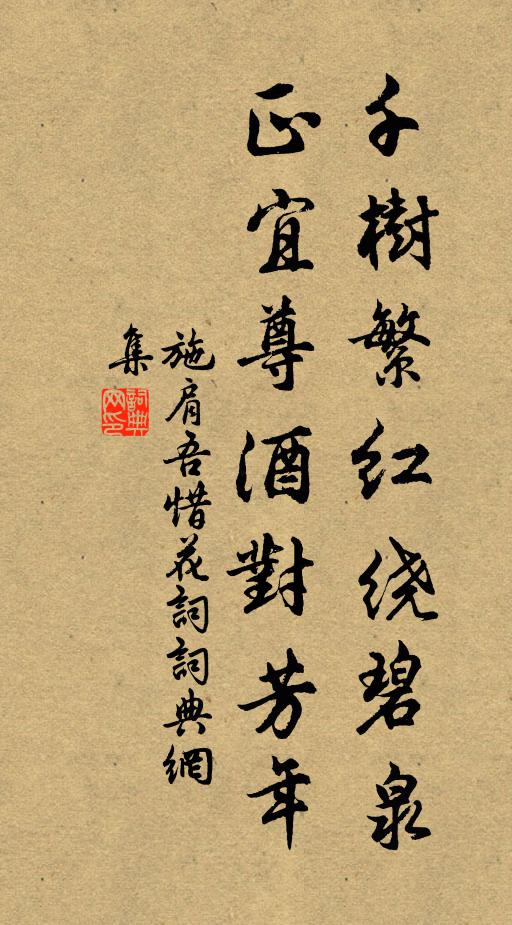 千樹繁红绕碧泉
正宜尊酒對芳年
施肩吾惜花詞詞典網
集
詞典网印